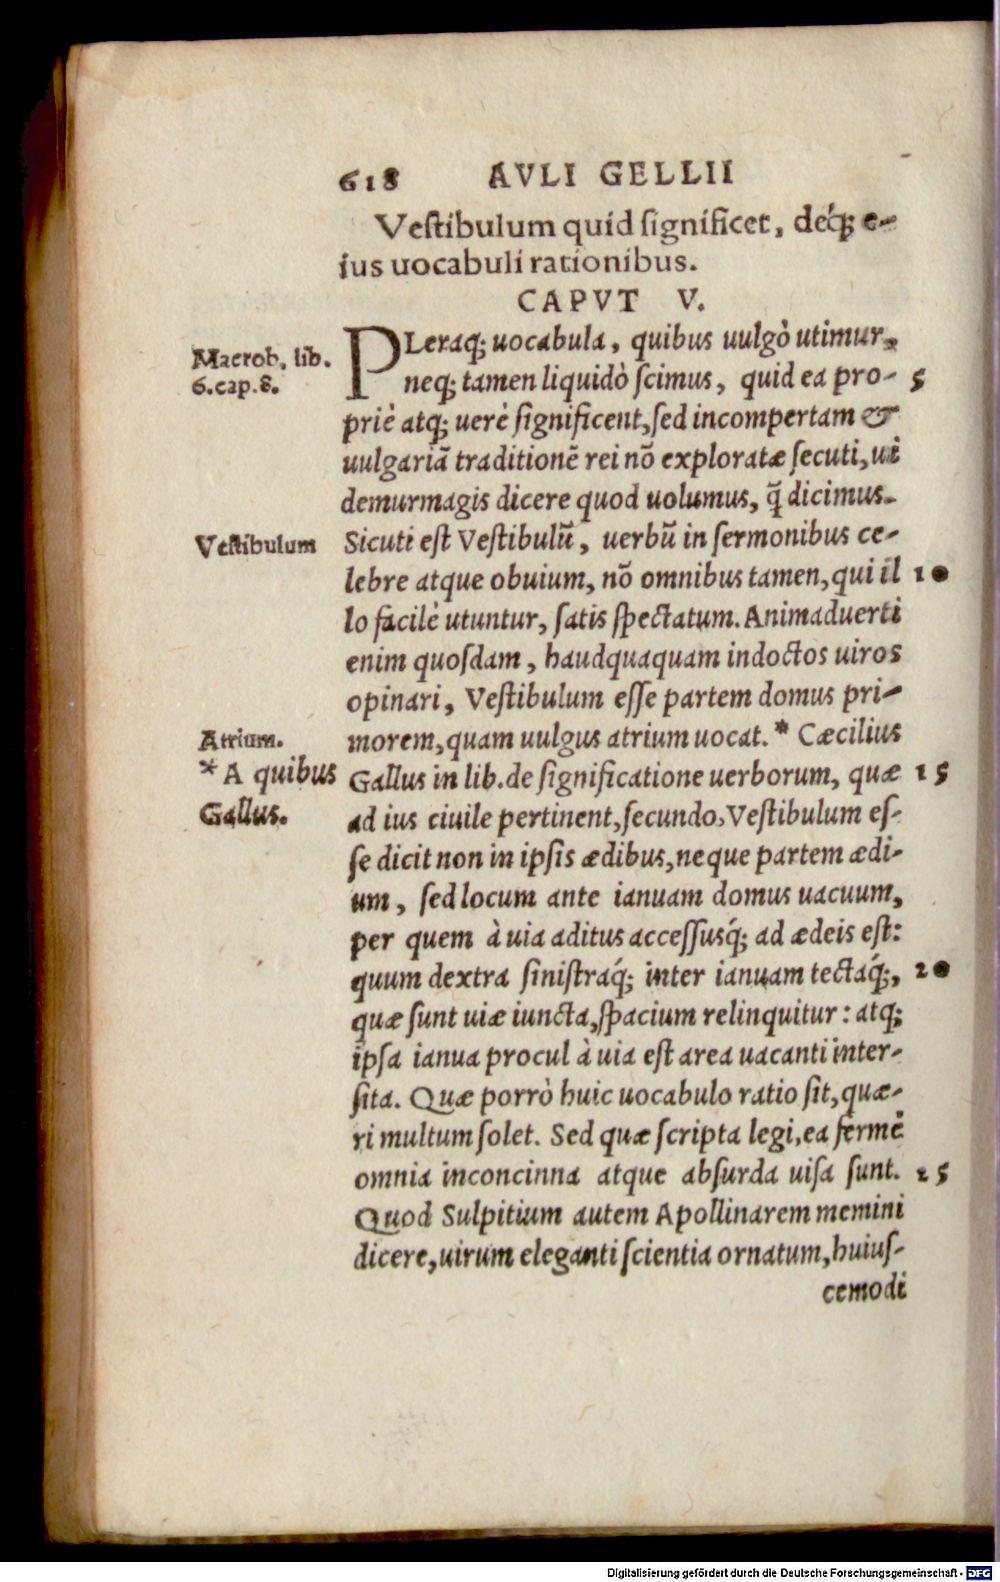 618 AVLI GELLII
Veſtibulum quid ſignificet, deq́; e-
ius uocabuli rationibus.
CAPVT V.
Macrob. lib.
6.cap.8.
PLeraq; uocabula, quibus uulgò utimur,
neq; tamen liquidò ſcimus, quid ea pro- 5
priè atq; uerè ſignificent, ſed incompertam &
uulgariā traditionē rei nō exploratæ ſecuti, ui
demur magis dicere quod uolumus, q̄ dicimus.
Veſtibulum
Sicuti eſt Veſtibulū, uerbū in ſermonibus ce-
lebre atque obuium, nō omnibus tamen, qui il 10
lo facilè utuntur, ſatis ſpectatum. Animaduerti
enim quoſdam, haudquaquam indoctos uiros
opinari, Veſtibulum eſſe partem domus pri-
Atrium.
morem, quam uulgus atrium uocat. * Cæcilius
* A quibus
Gallus.
Gallus in lib. de ſignificatione uerborum, quæ 15
ad ius ciuile pertinent, ſecundo, Veſtibulum eſ-
ſe dicit non in ipſis ædibus, neque partem ædi-
um, ſed locum ante ianuam domus uacuum,
per quem à uia aditus acceſſusq́; ad ædeis eſt:
quum dextra ſiniſtraq́; inter ianuam tectaq́;, 20
quæ ſunt uiæ iuncta, ſpacium relinquitur: atq;
ipſa ianua procul à uia eſt area uacanti inter-
ſita. Quæ porrò huic uocabulo ratio ſit, quæ-
ri multum ſolet. Sed quæ ſcripta legi, ea fermè
omnia inconcinna atque abſurda uiſa ſunt. 25
Quod Sulpitium autem Apollinarem memini
dicere, uirum eleganti ſcientia ornatum, huiuſ-
cemodi
Digitalisierung gefördert durch die Deutsche Forschungsgemeinschaft - DFG